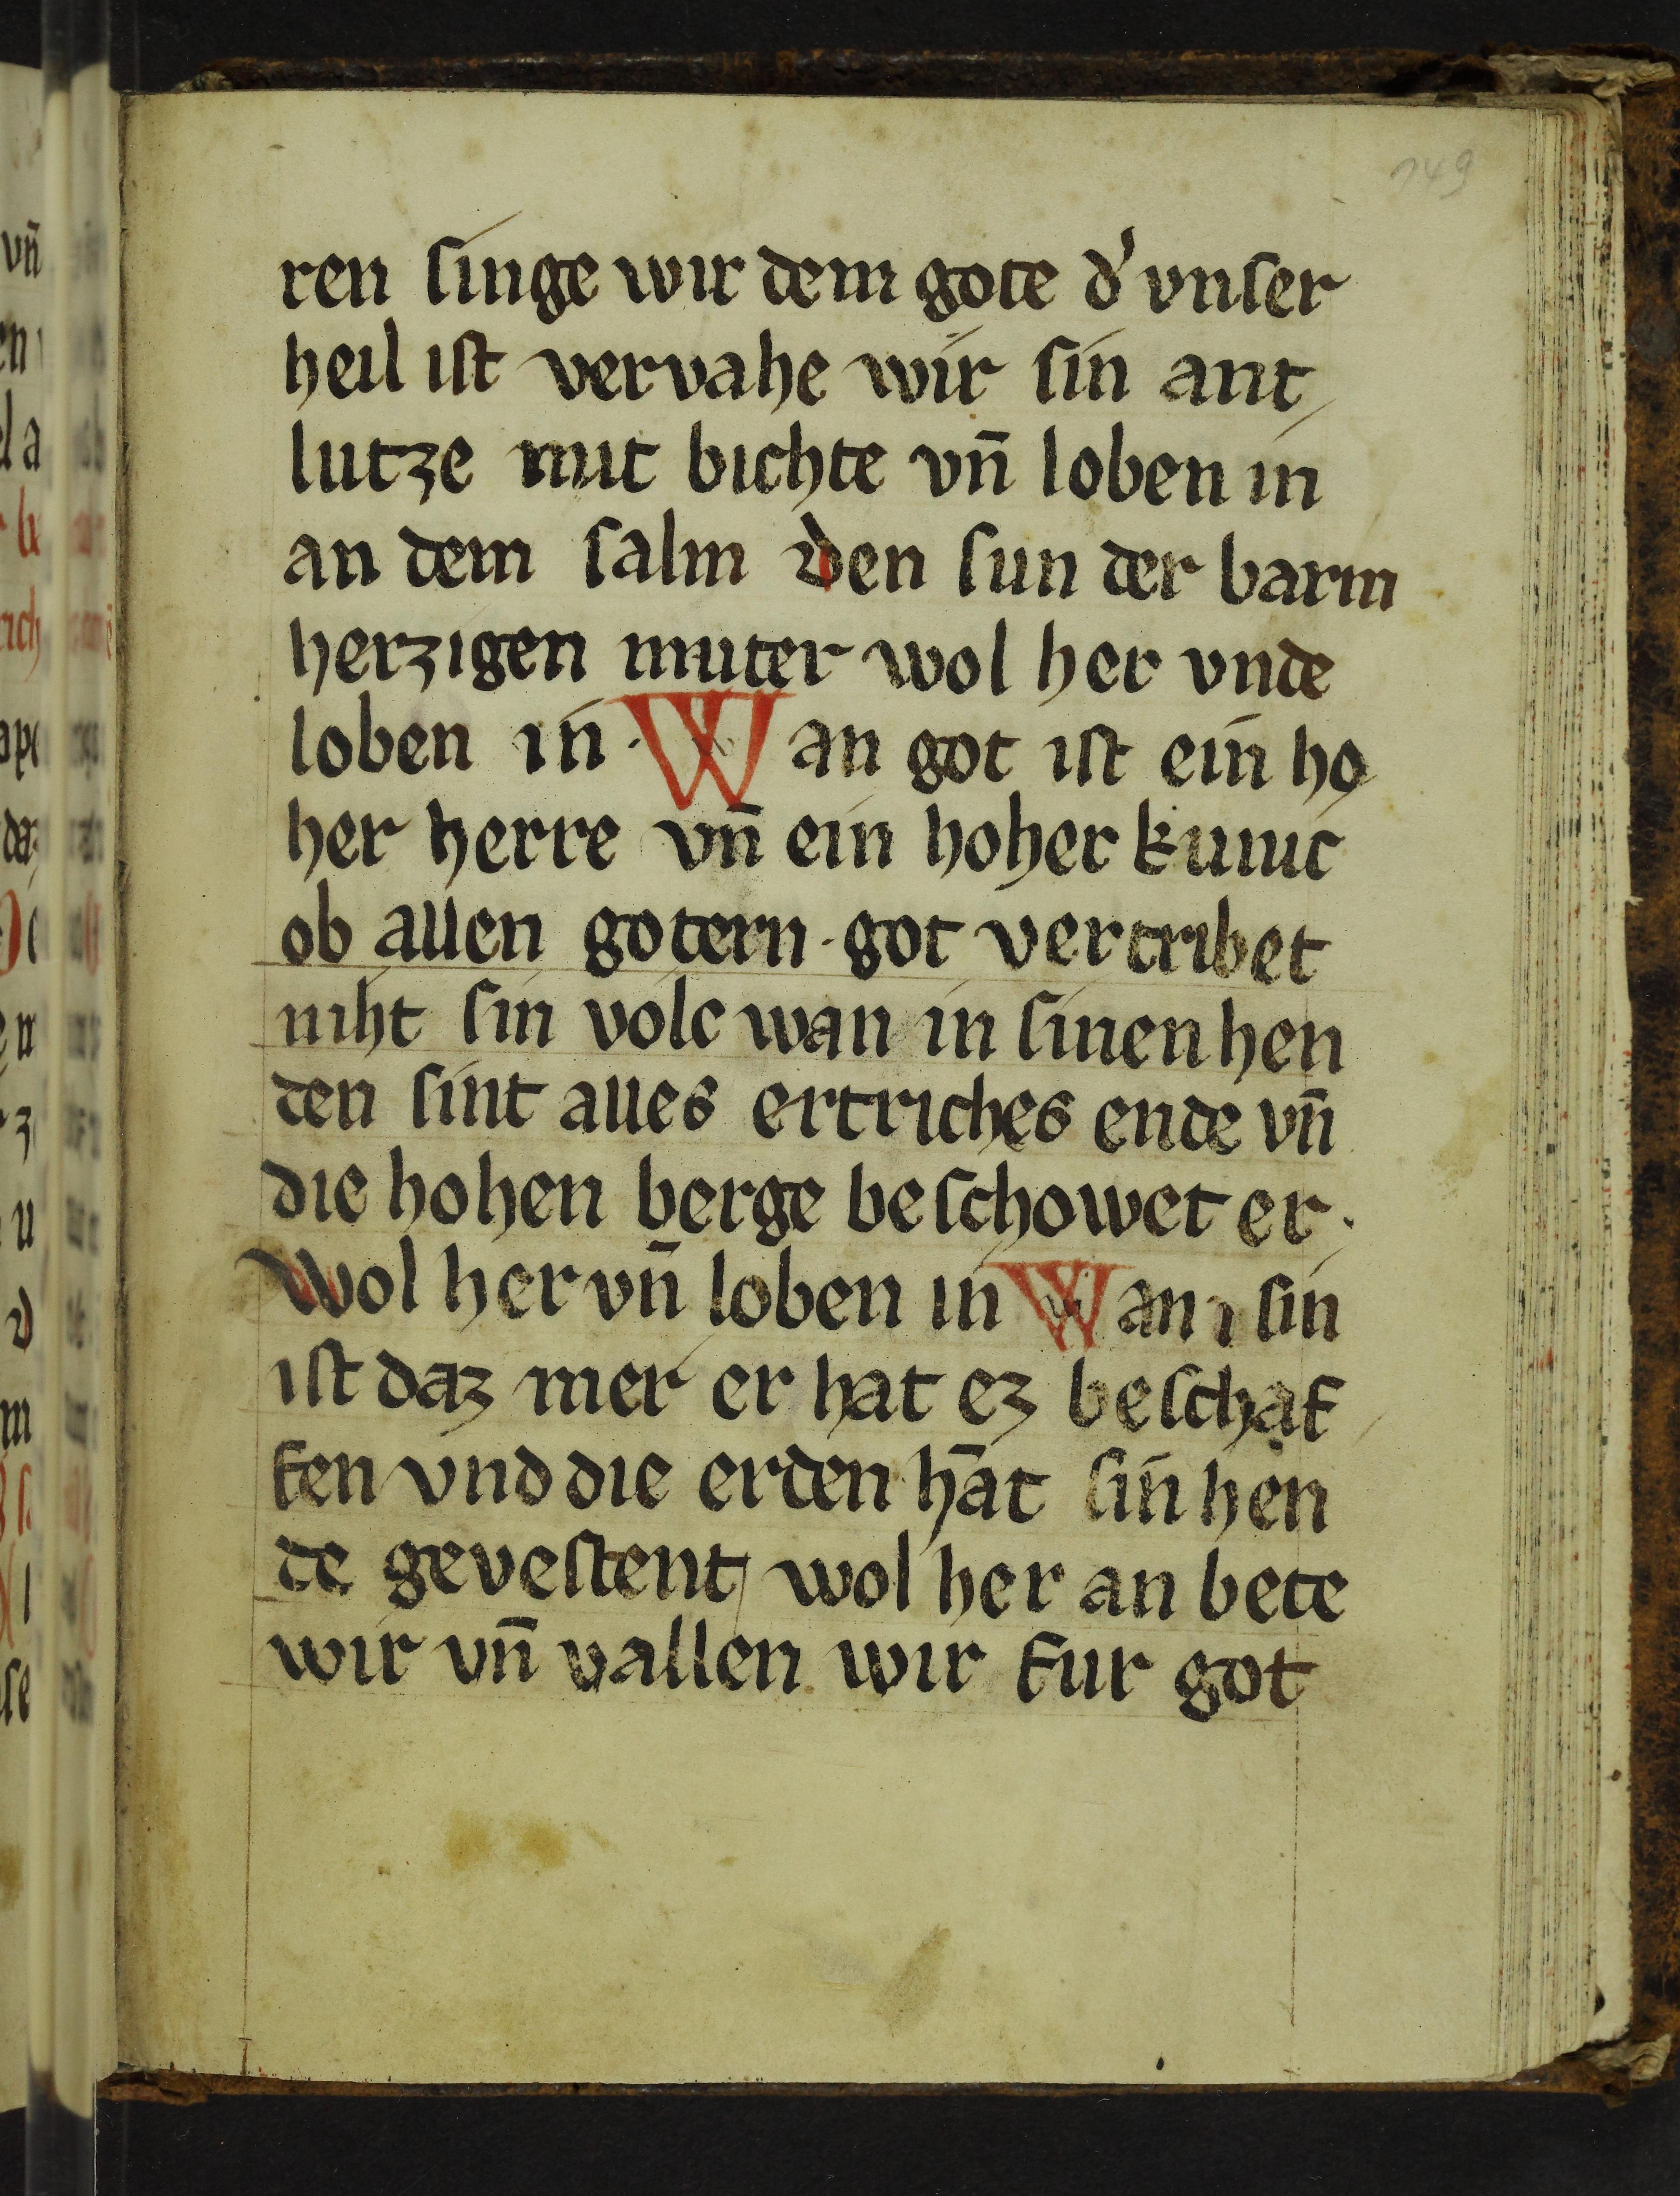 149
ren singe wir dem gote d' vnser
heil ist vervahe wir sin ant
lutze mit bichte vn̄ loben in
an dem salm Den sun der barm
herzigen muter wol her vnde
loben in · Wan got ist ein ho
her herre vn̄ ein hoher kunic
ob allen gotern · got vertribet
niht sin volc wan in sinen hen
den sint alles ertriches ende vn̄
die hohen berge beschowet er ·
Wol her vn̄ loben in Wan sin
ist daz mer er hat ez beschaf
fen vnd die erden hat sin hen
de gevestent wol her an bete
wir vn̄ vallen wir fur got